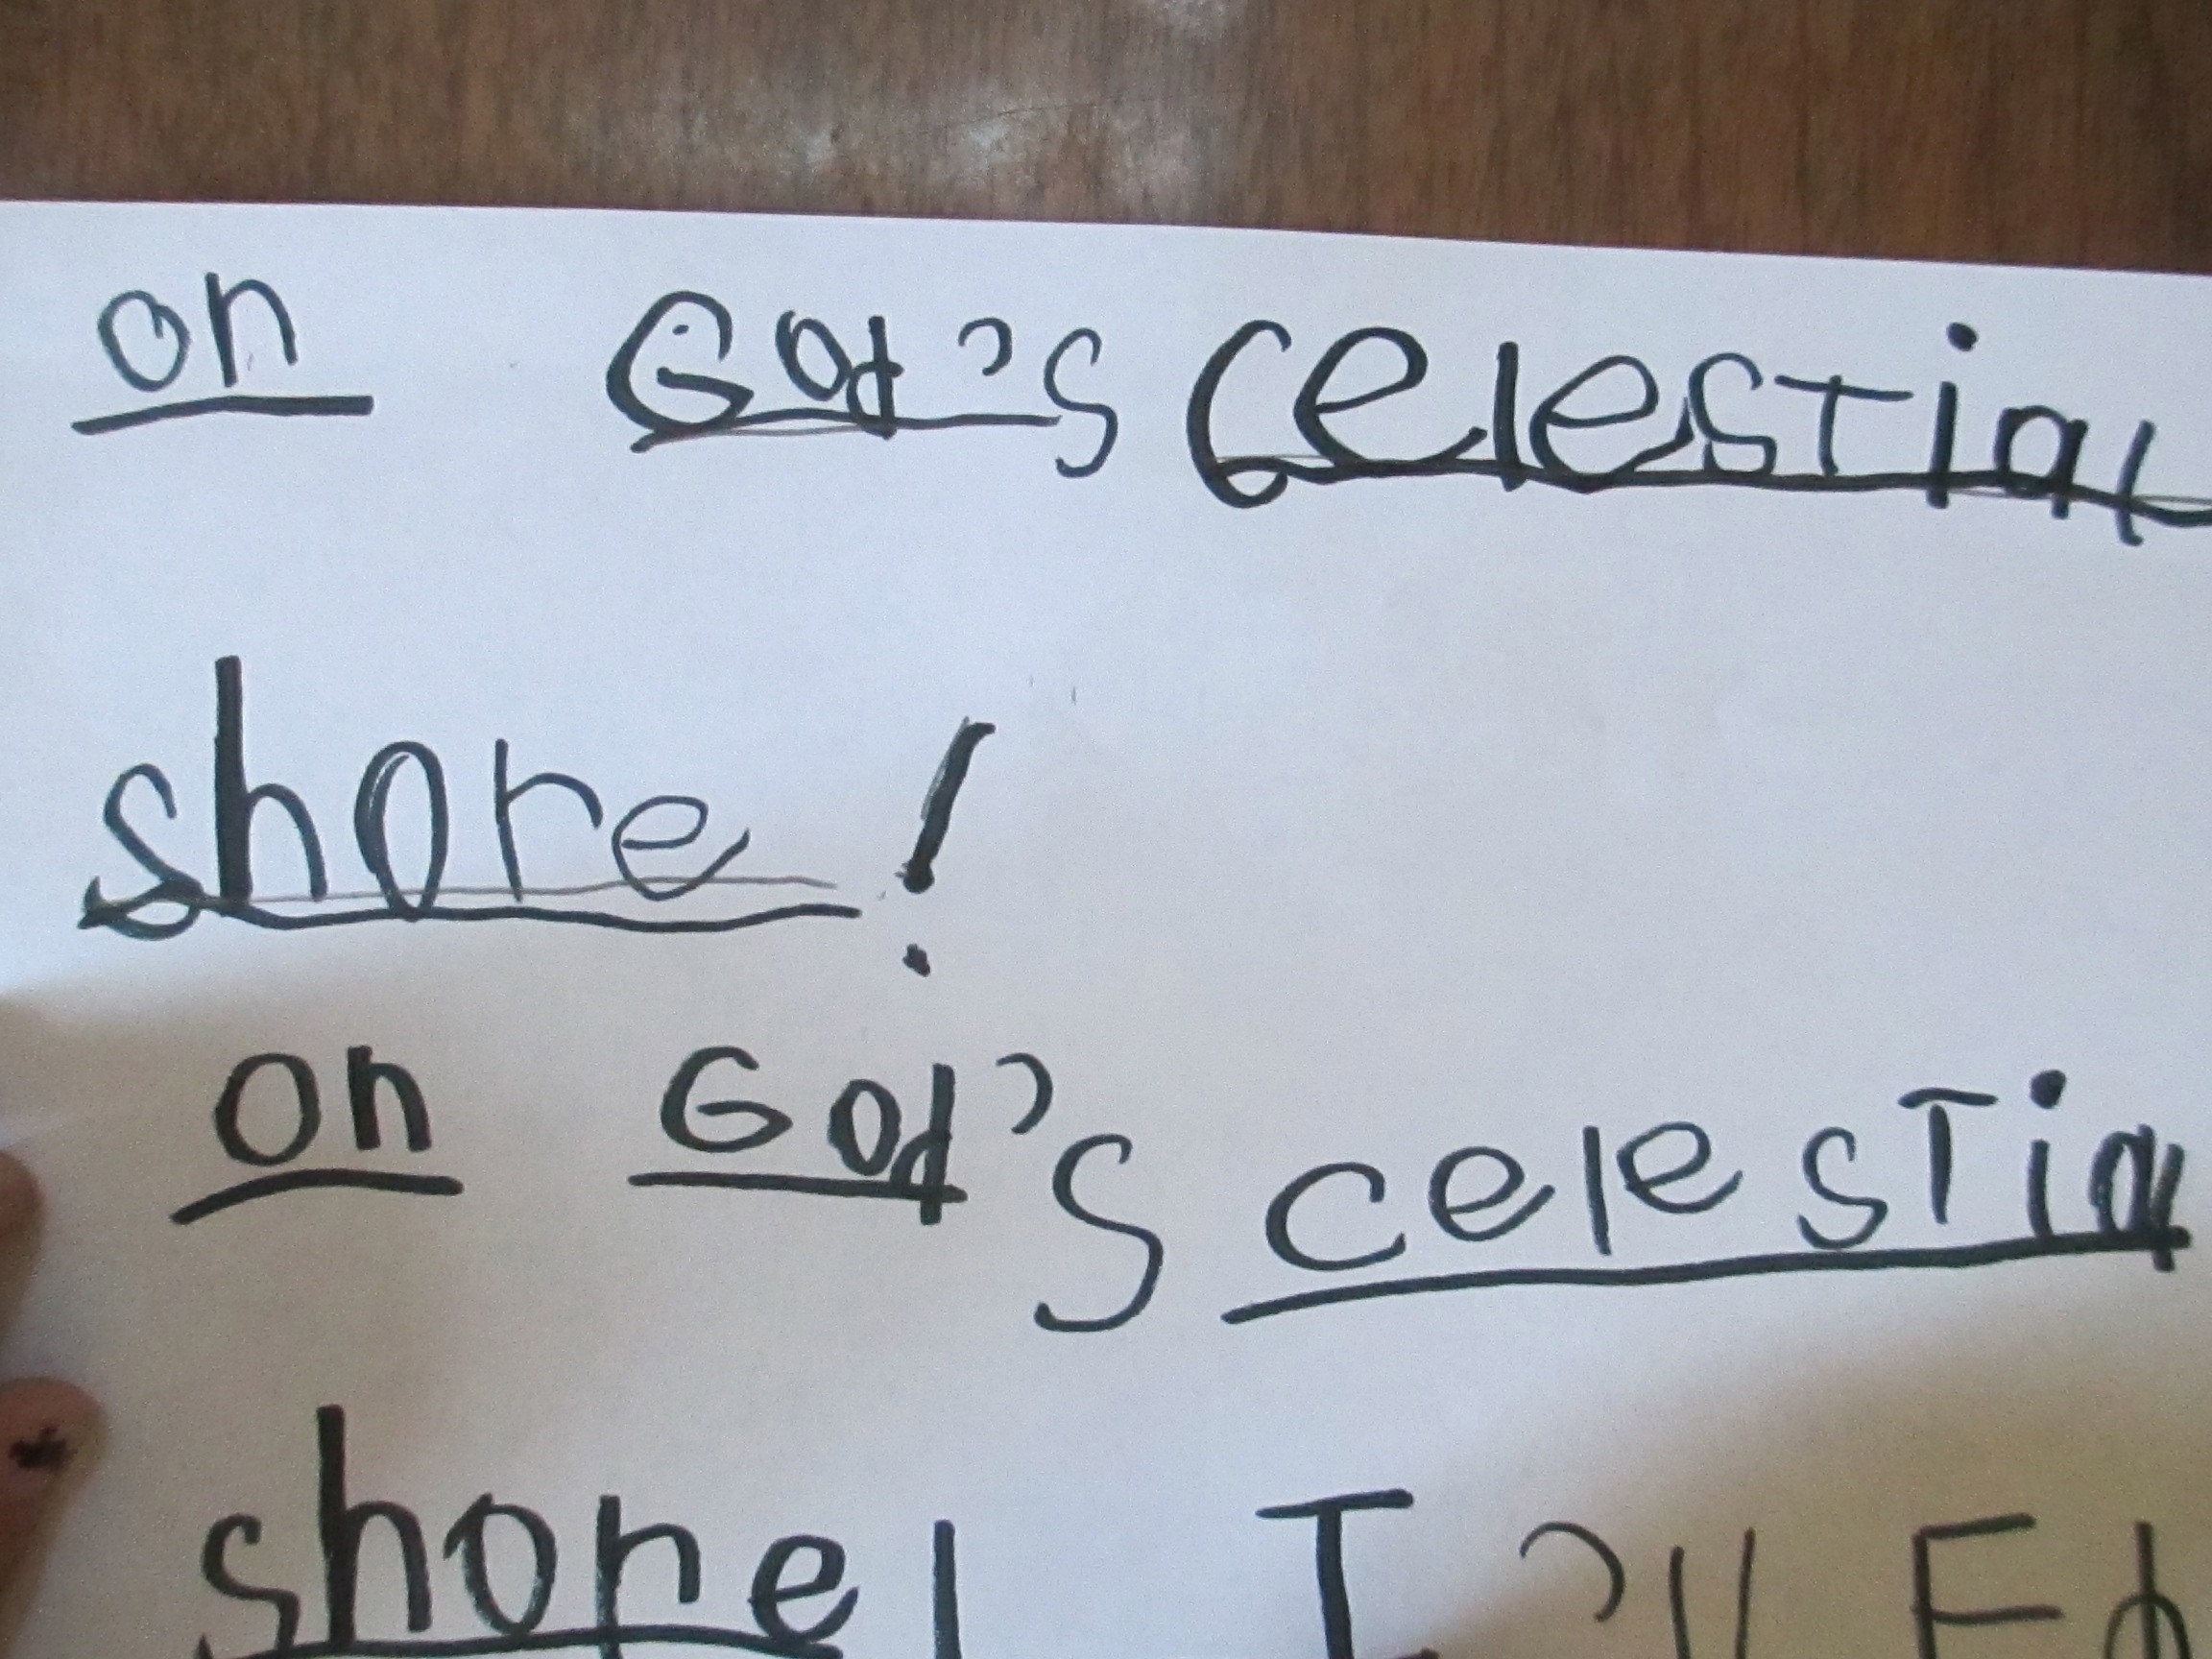 on God's celestial
shore!
on God's celestia
shore! I'll